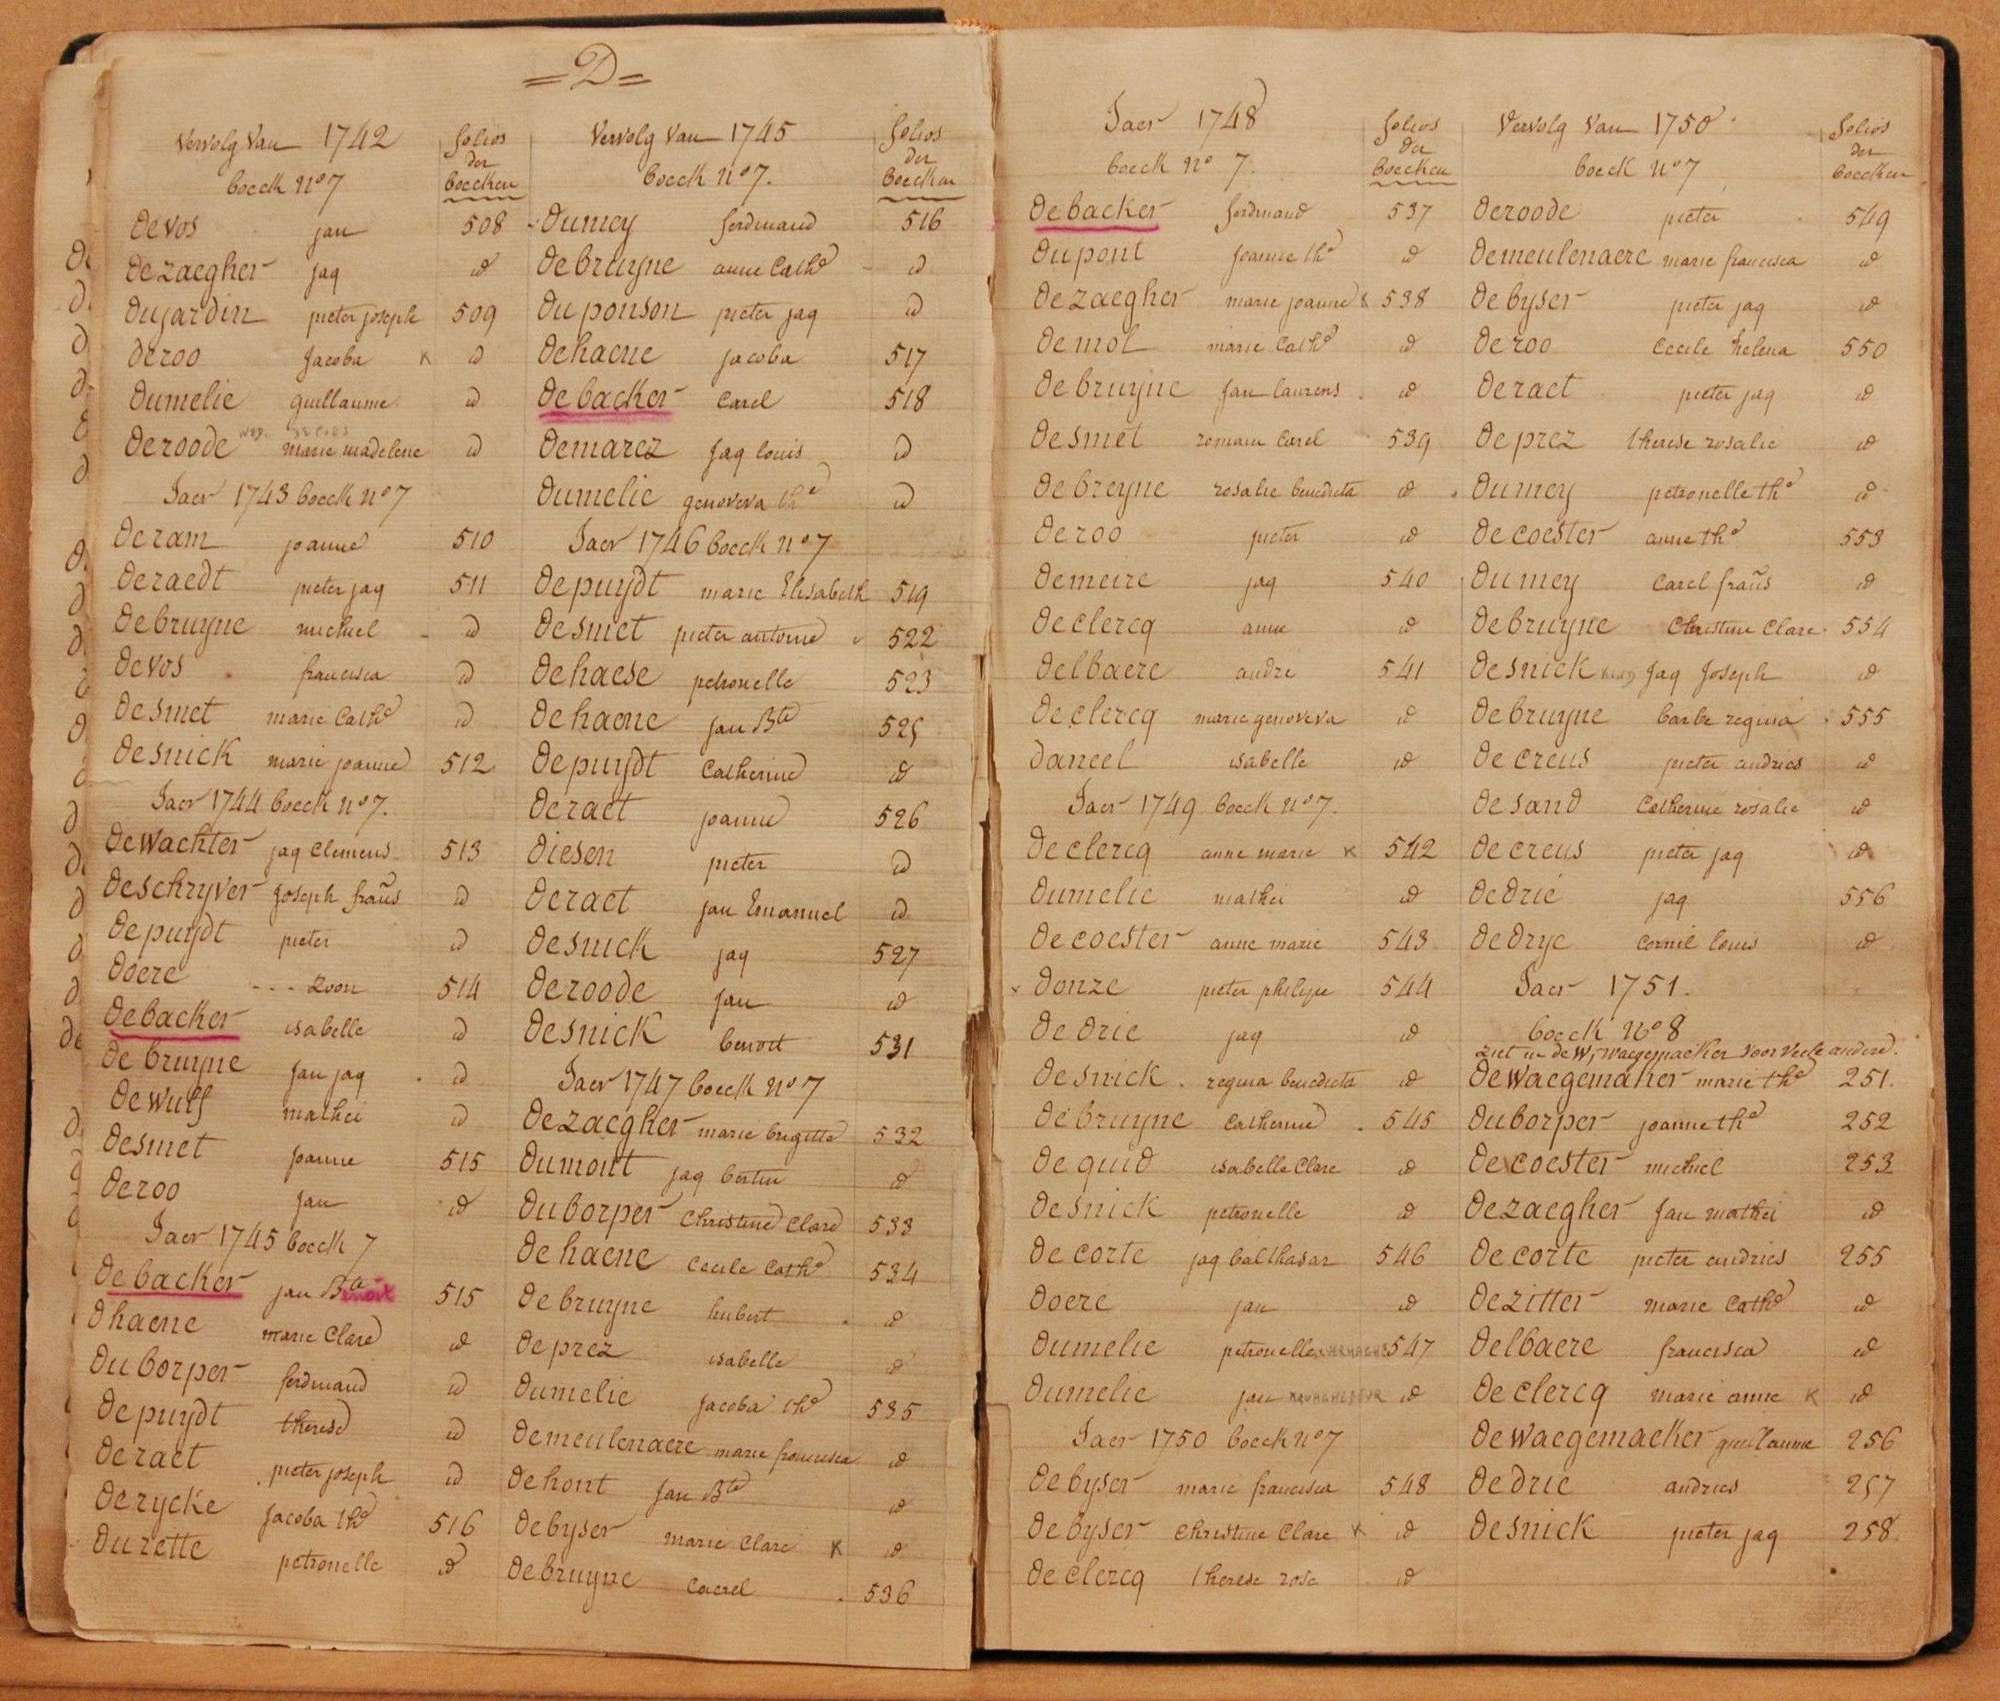 =D=
Vervolg van 1742
boeck n° 7
folios
der
boecken
devos jan 508
dezaegher jaq id
dujardin pieter joseph 509
deroo jacoba x id
dumelie guillaume id
deroode marie madelene id
Jaer 1743 boeck n° 7
deram joanne 510
deraedt pieter jaq 511
debruyne michiel id
devos francisca id
desmet marie Cathe id
desnick marie joanne 512
Jaer 1744 boeck n° 7.
dewachter jaq Clemens 513
deschryver joseph frañs id
depuydt pieter id
doere - - - Zoon 514
debacker isabelle id
debruyne jan jaq id
dewulf mathei id
desmet joanne 515
deroo jan id
Jaer 1745 boeck 7
debacker jan Bte 515
dhaene marie Clare id
duborper ferdinand id
depuydt therese id
deraet pieter joseph id
derycke jacoba the 516
durette petronelle id
Vervolg van 1745
boeck n° 7.
folios
der
boecken
dumey ferdinand 516
debruyne anne Cathe id
duponson pieter jaq id
dehaene jacoba 517
debacker Carel 518
demarez jaq louis id
dumelie genoveva the id
Jaer 1746 boeck n° 7
depuydt marie Elisabeth 519
desmet pieter antoine 522
dehaese petronelle 523
dehaene jan Bte 525
depuydt Catherine id
deraet joanne 526
diesen pieter id
deraet jan Emanuel id
desnick jaq 527
deroode jan id
desnick benoit 531
Jaer 1747 boeck n° 7
dezaegher marie brigitte 532
dumont jaq bertin id
duborper Christine Clare 533
dehaene Cecile Cathe 534
debruyne hubert id
deprez isabelle id
dumelie jacoba the 535
demeulenaere marie francisca id
dehont jan Bte id
debyser marie Clare x id
debruyne Caerel 536
Jaer 1748
boeck n° 7.
folios
der
boecken
debacker ferdinand 537
dupont joanne the id
dezaegher marie joanne x 538
demol marie Cathe id
debruyne jan laurens id
desmet romain Carel 539
debreyne rosalie benedicta id
deroo pieter id
demeire jaq 540
declercq anne id
delbaere andré 541
declercq marie genoveva id
daneel isabelle id
Jaer 1749 boeck n° 7.
declercq anne marie x 542
dumelie mathei id
decoester anne marie 543
x donze pieter philipe 544
dedrie jaq id
desnick regina benedicta id
debruyne Catherine 545
dequid isabelle Clare id
desnick petronelle id
decorte jaq balthasar 546
doere jan id
dumelie petronelle 547
dumelie jan id
Jaer 1750 boeck n° 7
debyser marie francisca 548
debyser Christine Clare x id
declercq therese rose id
Vervolg van 1750
boeck n° 7
folios
der
boecken
deroode pieter 549
demeulenaere marie francisca id
debyser pieter jaq id
deroo Cecile helena 550
deraet pieter jaq id
deprez therese rosalie id
dumey petronelle the id
decoester anne the 553
dumey Carel frañs id
debruyne Christine Clare 554
desnick jaq joseph id
debruyne barbe regina 555
decreus pieter andries id
desand Catherine rosalie id
decreus pieter jaq id
dedrie jaq 556
dedrye Cornil louis id
Jaer 1751.
boeck n° 8
ziet in de W, Waegemaeker voor veele andere.
dewaegemaker marie the 251.
duborper joanne the 252
decoester michiel 253
dezaegher jan mathei id
decorte pieter andries 255
dezitter marie Cathe id
delbaere francisca id
declercq marie anne x id
dewaegemaeker guillaume 256
dedrie andries 257
desnick pieter jaq 258.